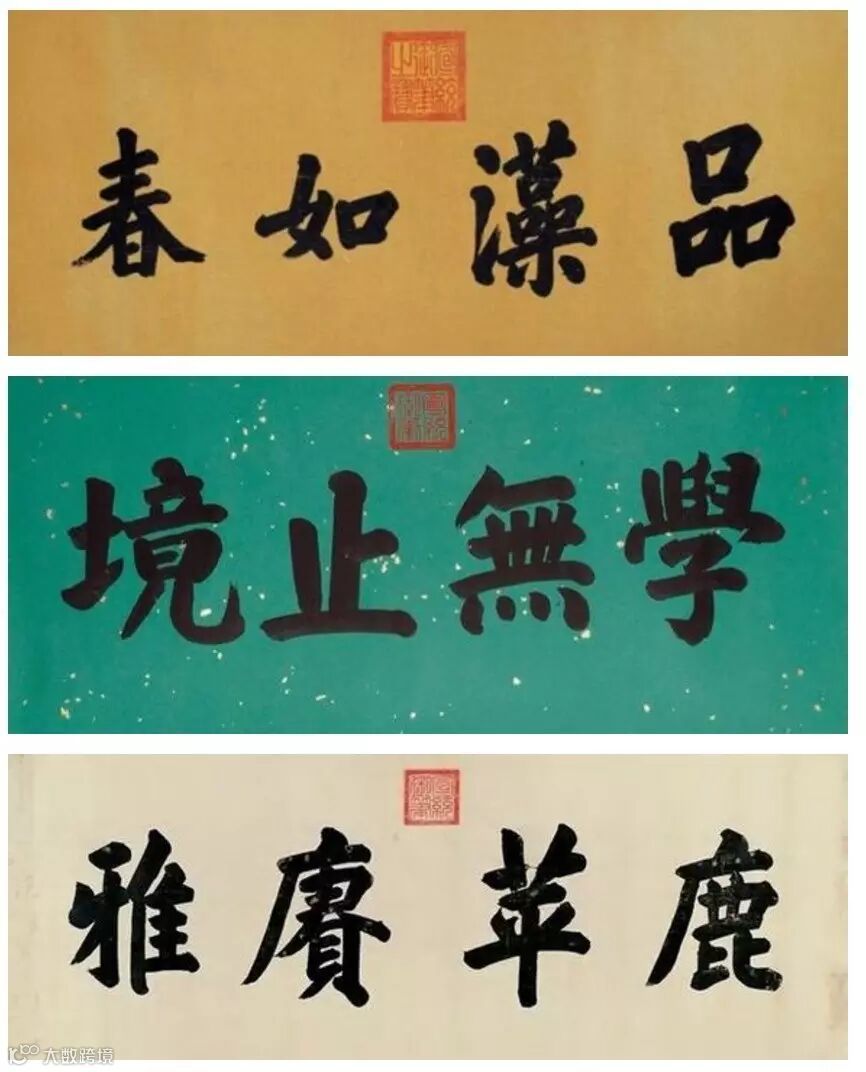 品藻如春
學無止境
鹿苹賡雅
大数跨境